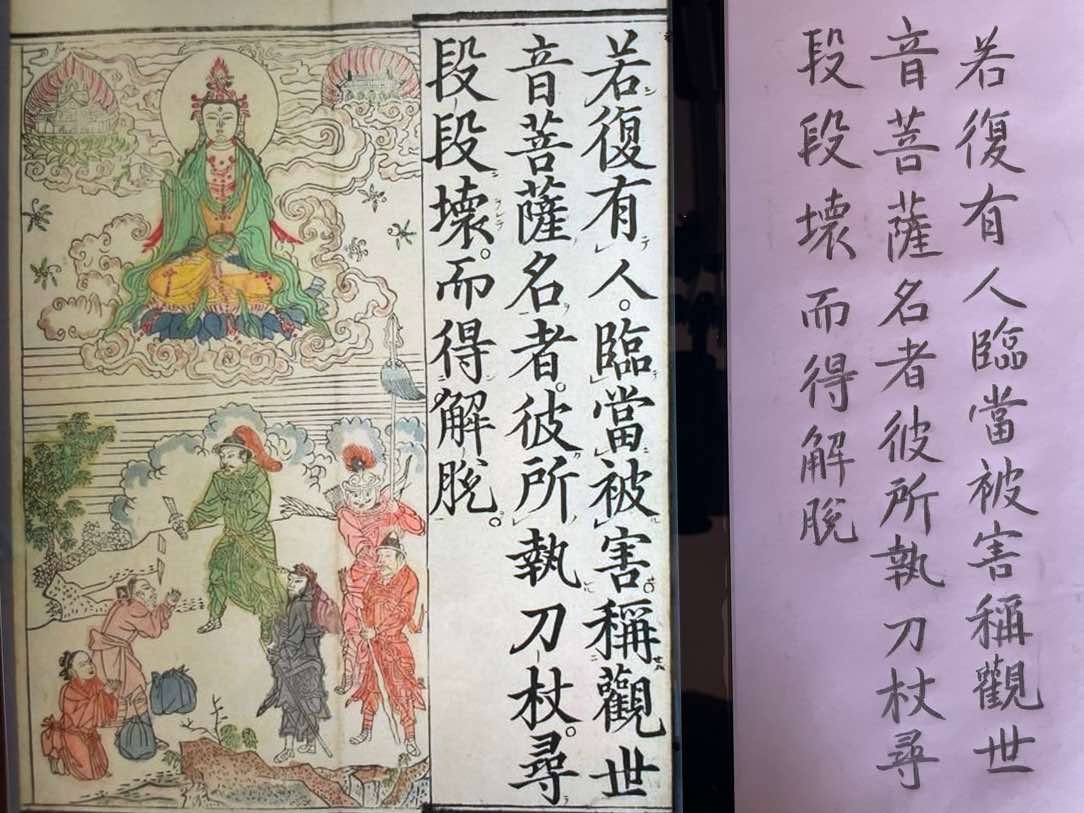 若復有人。臨當被害。稱觀世
音菩薩名者。彼所執刀杖。尋
段段壞。而得解脫。
若復有人臨當被害稱觀世
音菩薩名者彼所執刀杖尋
段段壞而得解脫